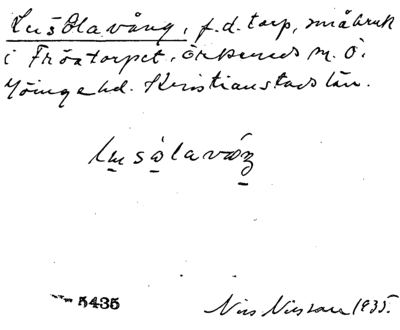 Lusólavång, f.d. torp, småbruk
i Fröatorpet, Örkeneds sn. Ö.
Göinge hd. Kristianstads län.
5435
Nils Nilsson 1935.